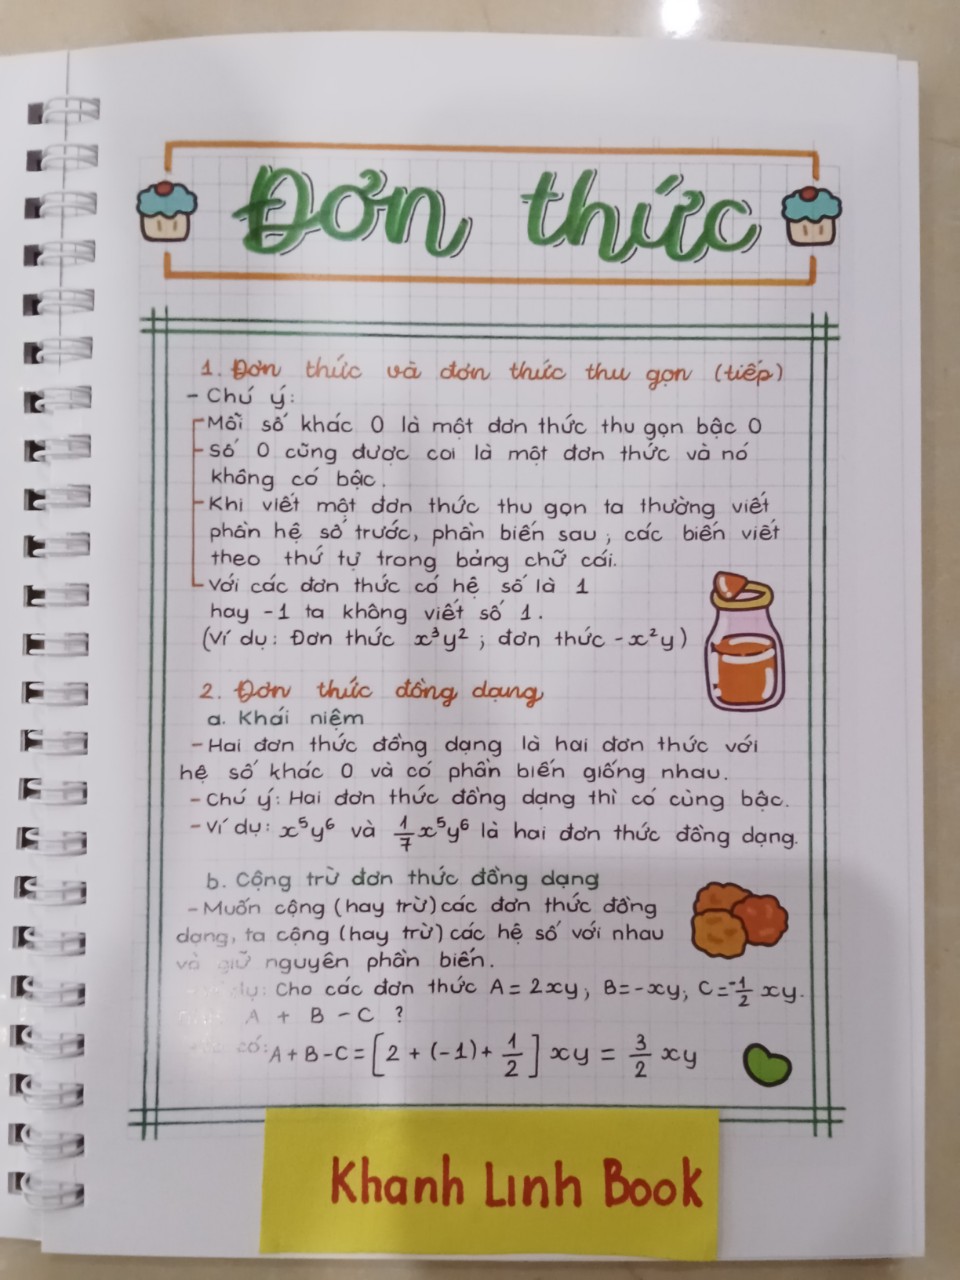 Đơn thức
1. Đơn thức và đơn thức thu gọn (tiếp)
- Chú ý:
Mỗi số khác 0 là một đơn thức thu gọn bậc 0
Số 0 cũng được coi là một đơn thức và nó
không có bậc.
Khi viết một đơn thức thu gọn ta thường viết
phần hệ số trước, phần biến sau; các biến viết
theo thứ tự trong bảng chữ cái.
Với các đơn thức có hệ số là 1
hay -1 ta không viết số 1.
(Ví dụ: Đơn thức x³y²; đơn thức -x²y)
2. Đơn thức đồng dạng
a. Khái niệm
- Hai đơn thức đồng dạng là hai đơn thức với
hệ số khác 0 và có phần biến giống nhau.
- Chú ý: Hai đơn thức đồng dạng thì có cùng bậc.
- Ví dụ: x⁵y⁶ và 1/7 x⁵y⁶ là hai đơn thức đồng dạng.
b. Cộng trừ đơn thức đồng dạng
- Muốn cộng (hay trừ) các đơn thức đồng
dạng, ta cộng (hay trừ) các hệ số với nhau
và giữ nguyên phần biến.
dụ: Cho các đơn thức A = 2xy; B = -xy; C = -1/2 xy.
A + B - C ?
có: A + B - C = [2 + (-1) + 1/2] xy = 3/2 xy
Khanh Linh Book